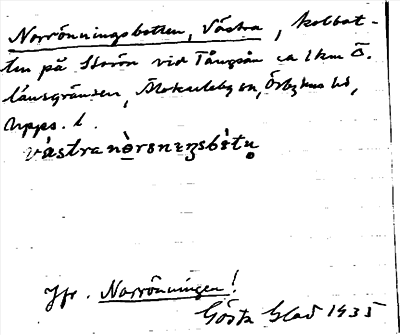 Norrönningsbotten, Västra, kolbot-
ten på Storön vid Tångsån ca 1 km Ö.
länsgränsen, Älvkarleby sn, Örbyhus hd,
Upps. l.
västra nòrønɪŋsbòtn̥
Jfr. Norrönningen!
Gösta Glad 1935